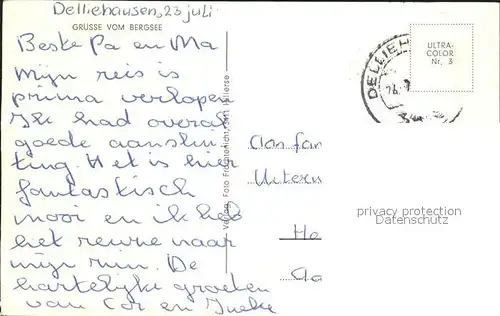 Delliehausen, 23 juli
GRÜSSE VOM BERGSEE
Beste Pa en Ma
Mijn reis is
prima verlopen
Ik had overal
goede aanslui
ting. Het is hier
fantastisch
mooi en ik heb
het reuze naar
mijn zin. De
hartelijke groeten
van Cor en Ineke
Verlag: Foto
DELLIEH
ULTRA-
COLOR
Nr. 3
Aan fam
Uitern
He
privacy protection
Datenschutz